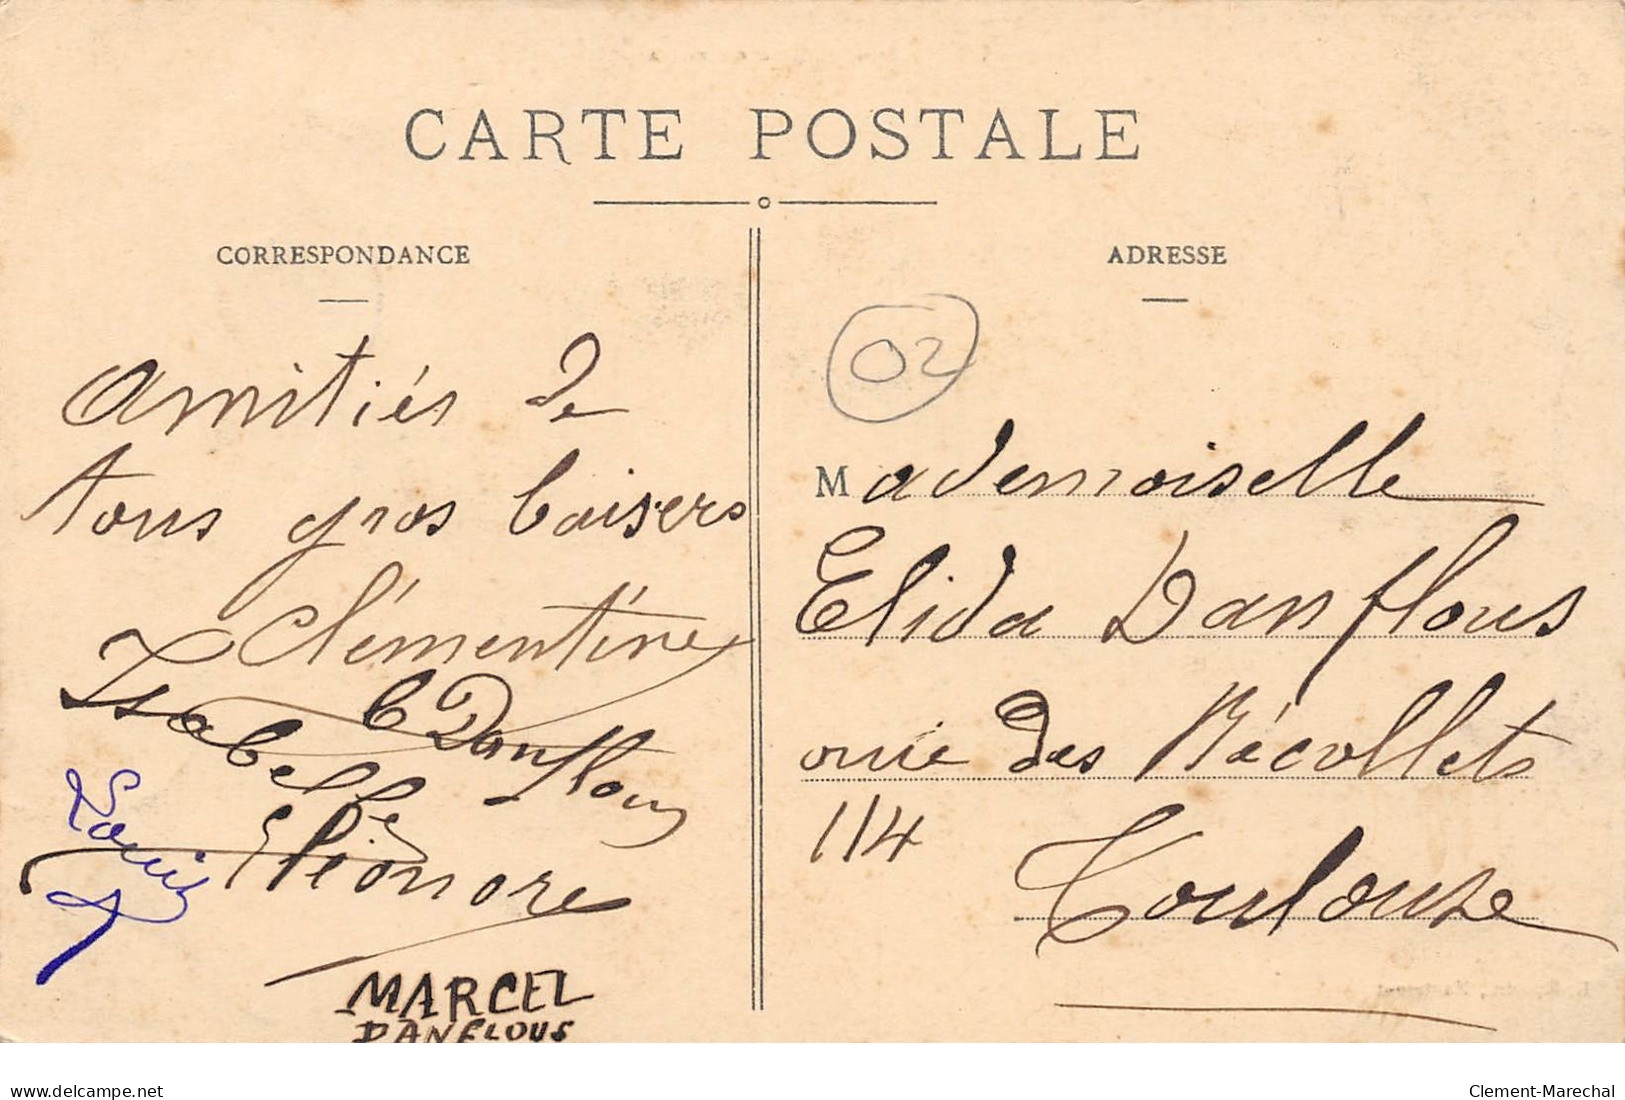 CARTE POSTALE
CORRESPONDANCE
amitiés de
tous gros baisers
Clémentine
Isabelle
Danflous
Louis
Eléonore
MARCEL
DANFLOUS
ADRESSE
02
Mademoiselle
Elida Danflous
rue des Récollets
114
Toulouse
delcampe.net
Clement-Marechal